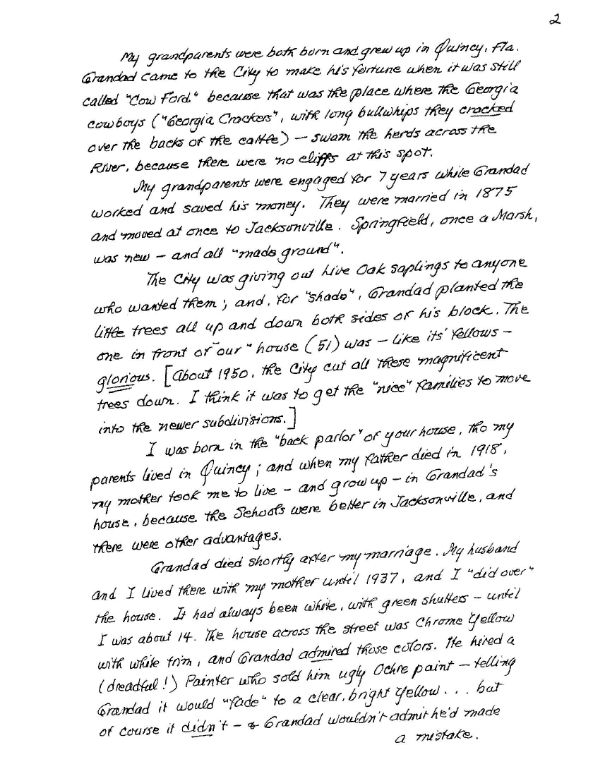 2
My grandparents were both born and grew up in Quincy, Fla.
Grandad came to the City to make his fortune when it was still
called "Cow Ford." because that was the place where the Georgia
cowboys ("Georgia Crackers", with long bullwhips they cracked
over the backs of the cattle) – swam the herds across the
River, because there were no cliffs at this spot.
My grandparents were engaged for 7 years while Grandad
worked and saved his money. They were married in 1875
and moved at once to Jacksonville. Springfield, once a Marsh,
was new – and all "made ground".
The City was giving out Live Oak saplings to anyone
who wanted them; and, for "shade", Grandad planted the
little trees all up and down both sides of his block. The
one in front of "our" house (51) was – like its' fellows –
glorious. [About 1950, the City cut all these magnificent
trees down. I think it was to get the "nice" families to move
into the newer subdivisions.]
I was born in the "back parlor" of your house, tho my
parents lived in Quincy; and when my father died in 1918,
my mother took me to live – and grow up – in Grandad's
house, because the Schools were better in Jacksonville, and
there were other advantages.
Grandad died shortly after my marriage. My husband
and I lived there with my mother until 1937, and I "did over"
the house. It had always been white, with green shutters – until
I was about 14. The house across the street was Chrome Yellow
with white trim, and Grandad admired those colors. He hired a
(dreadful!) Painter who sold him ugly Ochre paint – telling
Grandad it would "fade" to a clear, bright yellow... but
of course it didn't – & Grandad wouldn't admit he'd made
a mistake.